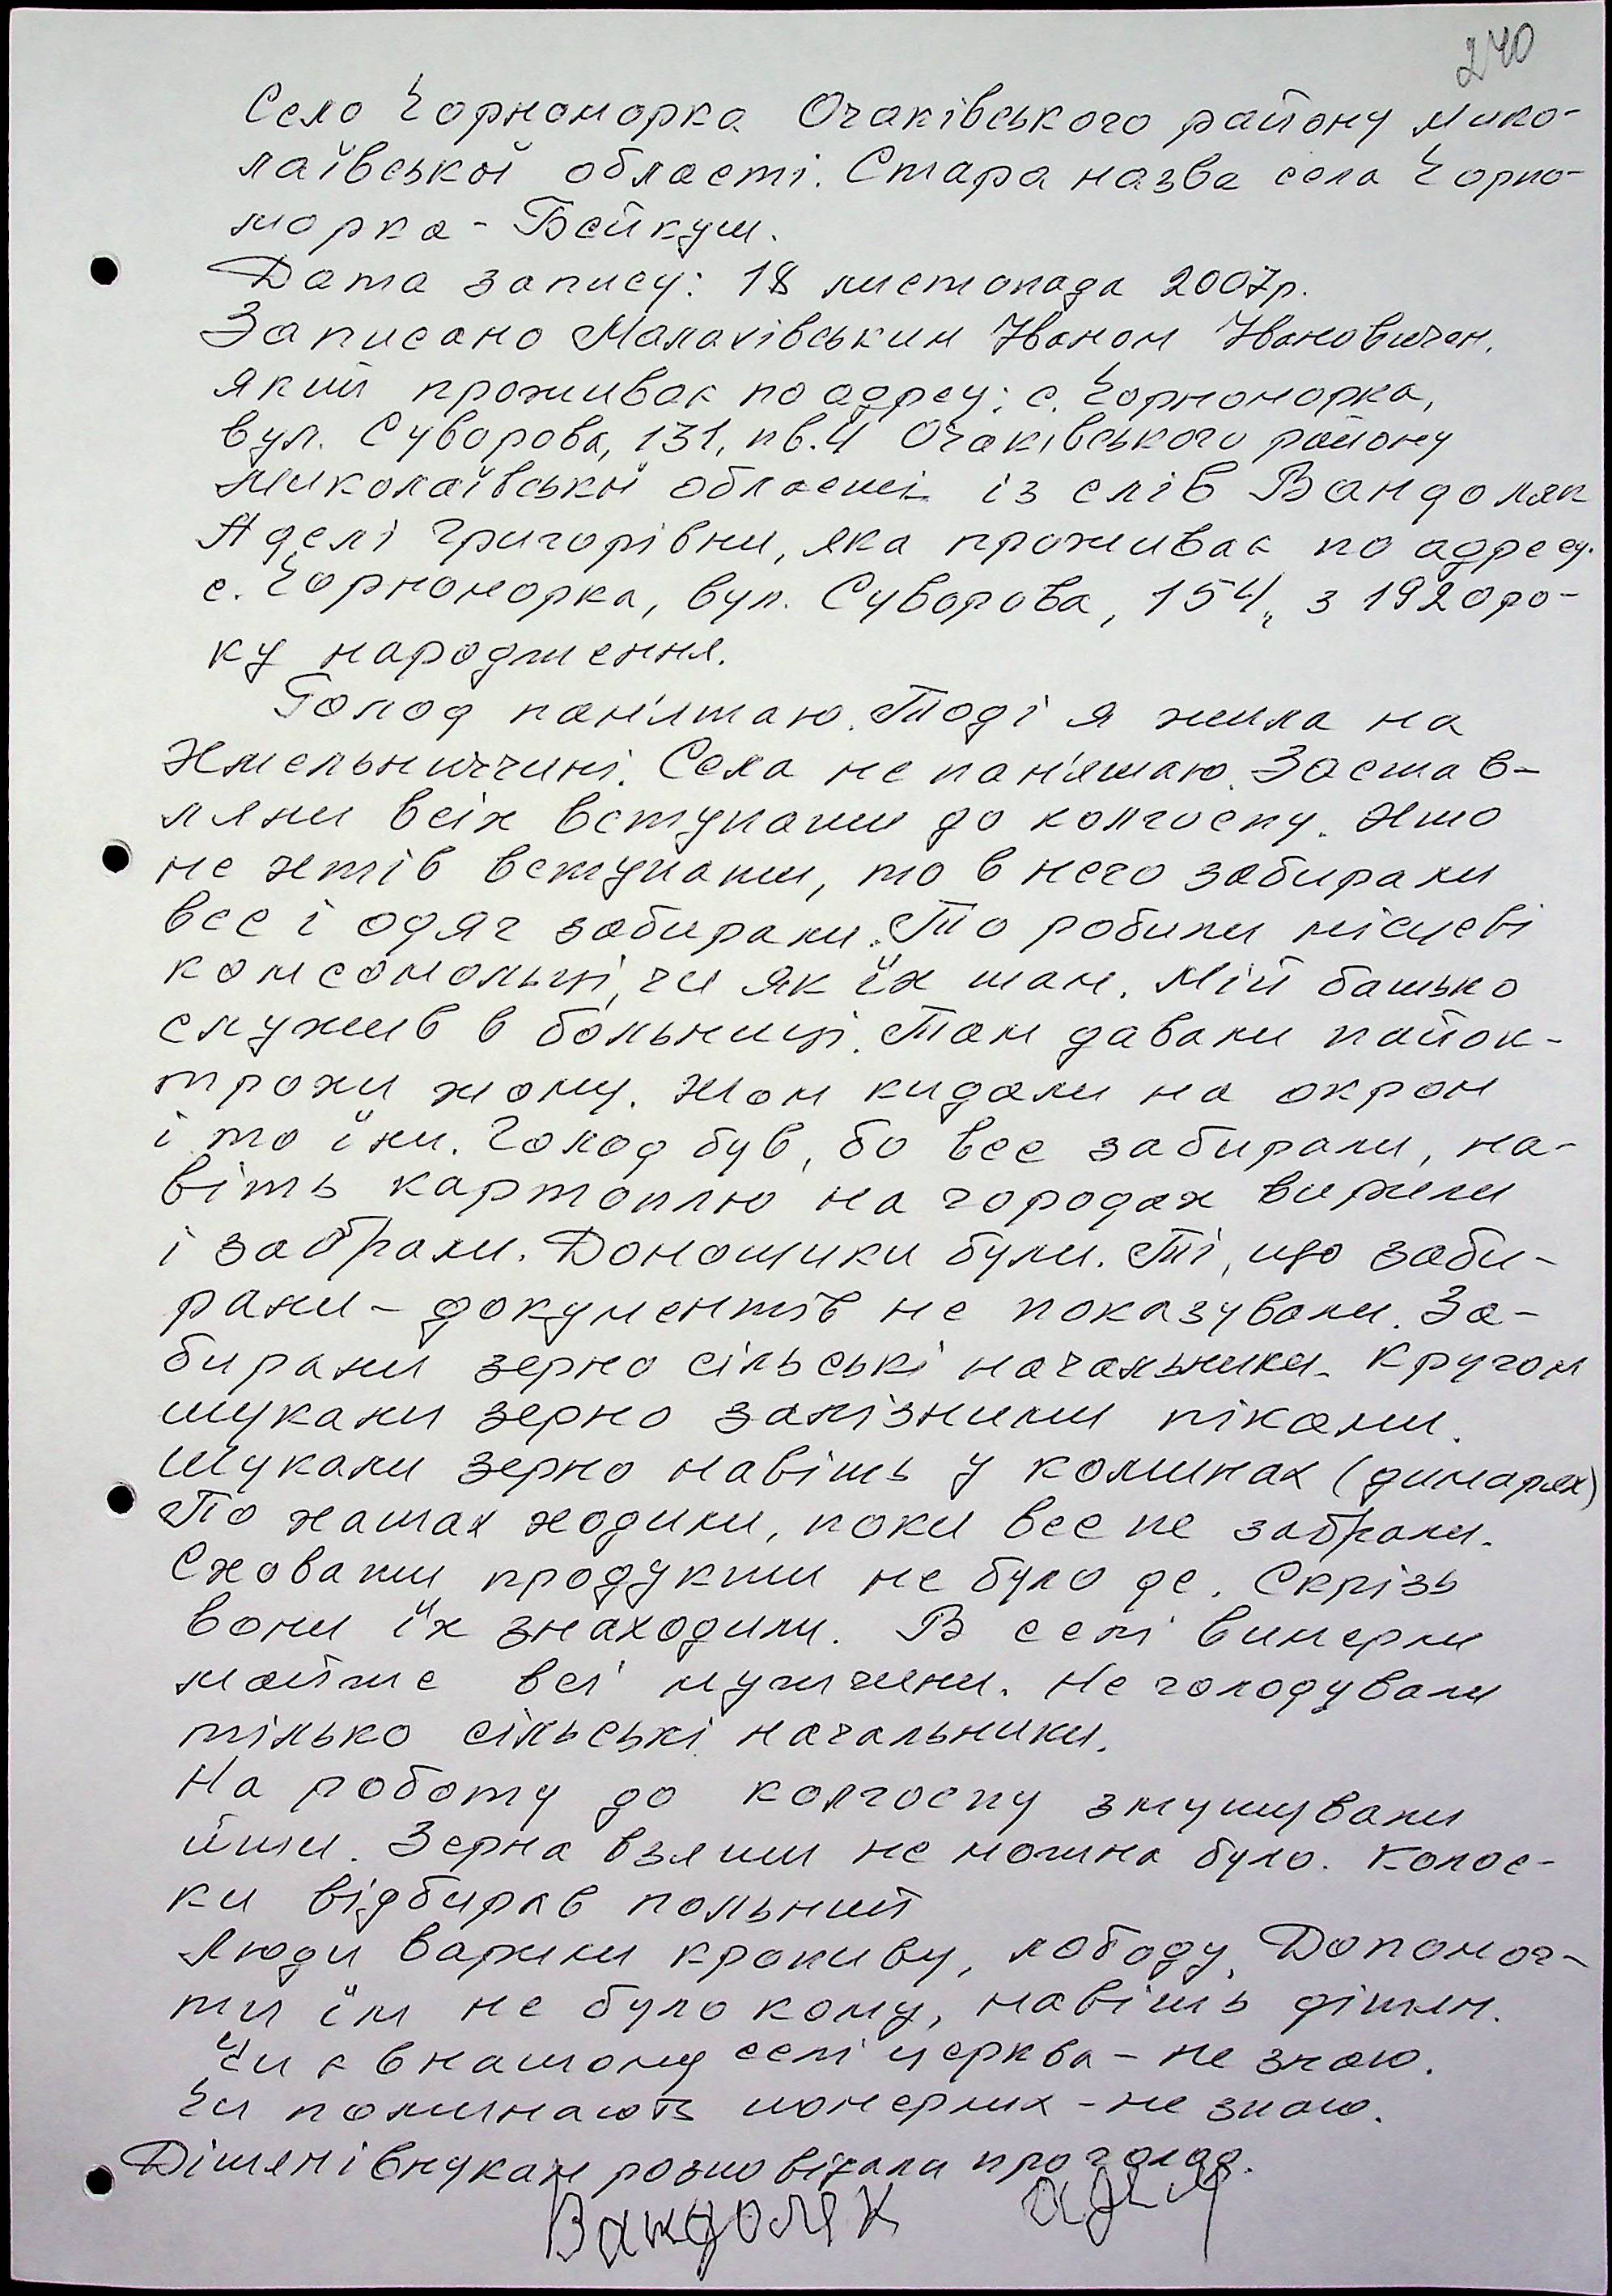 240
Село Чорноморка Очаківського району Мико-
лаївської області. Стара назва села Чорно-
морка - Бейкуш.
Дата запису: 18 листопада 2007р.
Записано Малахівським Іваном Івановичем,
який проживає по адресу: с. Чорноморка,
вул. Суворова, 131, кв. 4 Очаківського району
Миколаївській області із слів Вандоляк
Аделі Григорівни, яка проживає по адресу.
с. Чорноморка, вул. Суворова, 154, з 1920 ро-
ку народження.
Голод пам'ятаю. Тоді я жила на
Хмельниччині. Села не пам'ятаю. Застав-
ляли всіх вступати до колгоспу. Хто
не хтів вступати, то в него забирали
все і одяг забирали. То робили місцеві
комсомольці, чи як їх там. Мій батько
служив в больниці. Там давали пайок -
трохи жому. Жом кидали на окроп
і то їли. Голод був, бо все забирали, на-
віть картоплю на городах вирили
і забрали. Доношики були. Ті, що заби-
рали - документів не показували. За-
бирали зерно сільські начальники. Кругом
шукали зерно залізними піками.
Шукали зерно навіть у коминах (димарях)
По хатах ходили, поки все не забрали.
Сховати продукти не було де. Скрізь
вони їх знаходили. В селі вимерли
майже всі мужчини. Не голодували
тілько сільські начальники.
На роботу до колгоспу змушували
йти. Зерна взяти не можна було. Колос-
ки відбирав польний
Люди варили кропиву, лободу. Допомог-
ти їм не було кому, навіть дітям.
Чи є в нашому селі церква - не знаю.
Чи поминають померлих - не знаю.
Дітям і внукам розповідала про голод.
Вандоляк